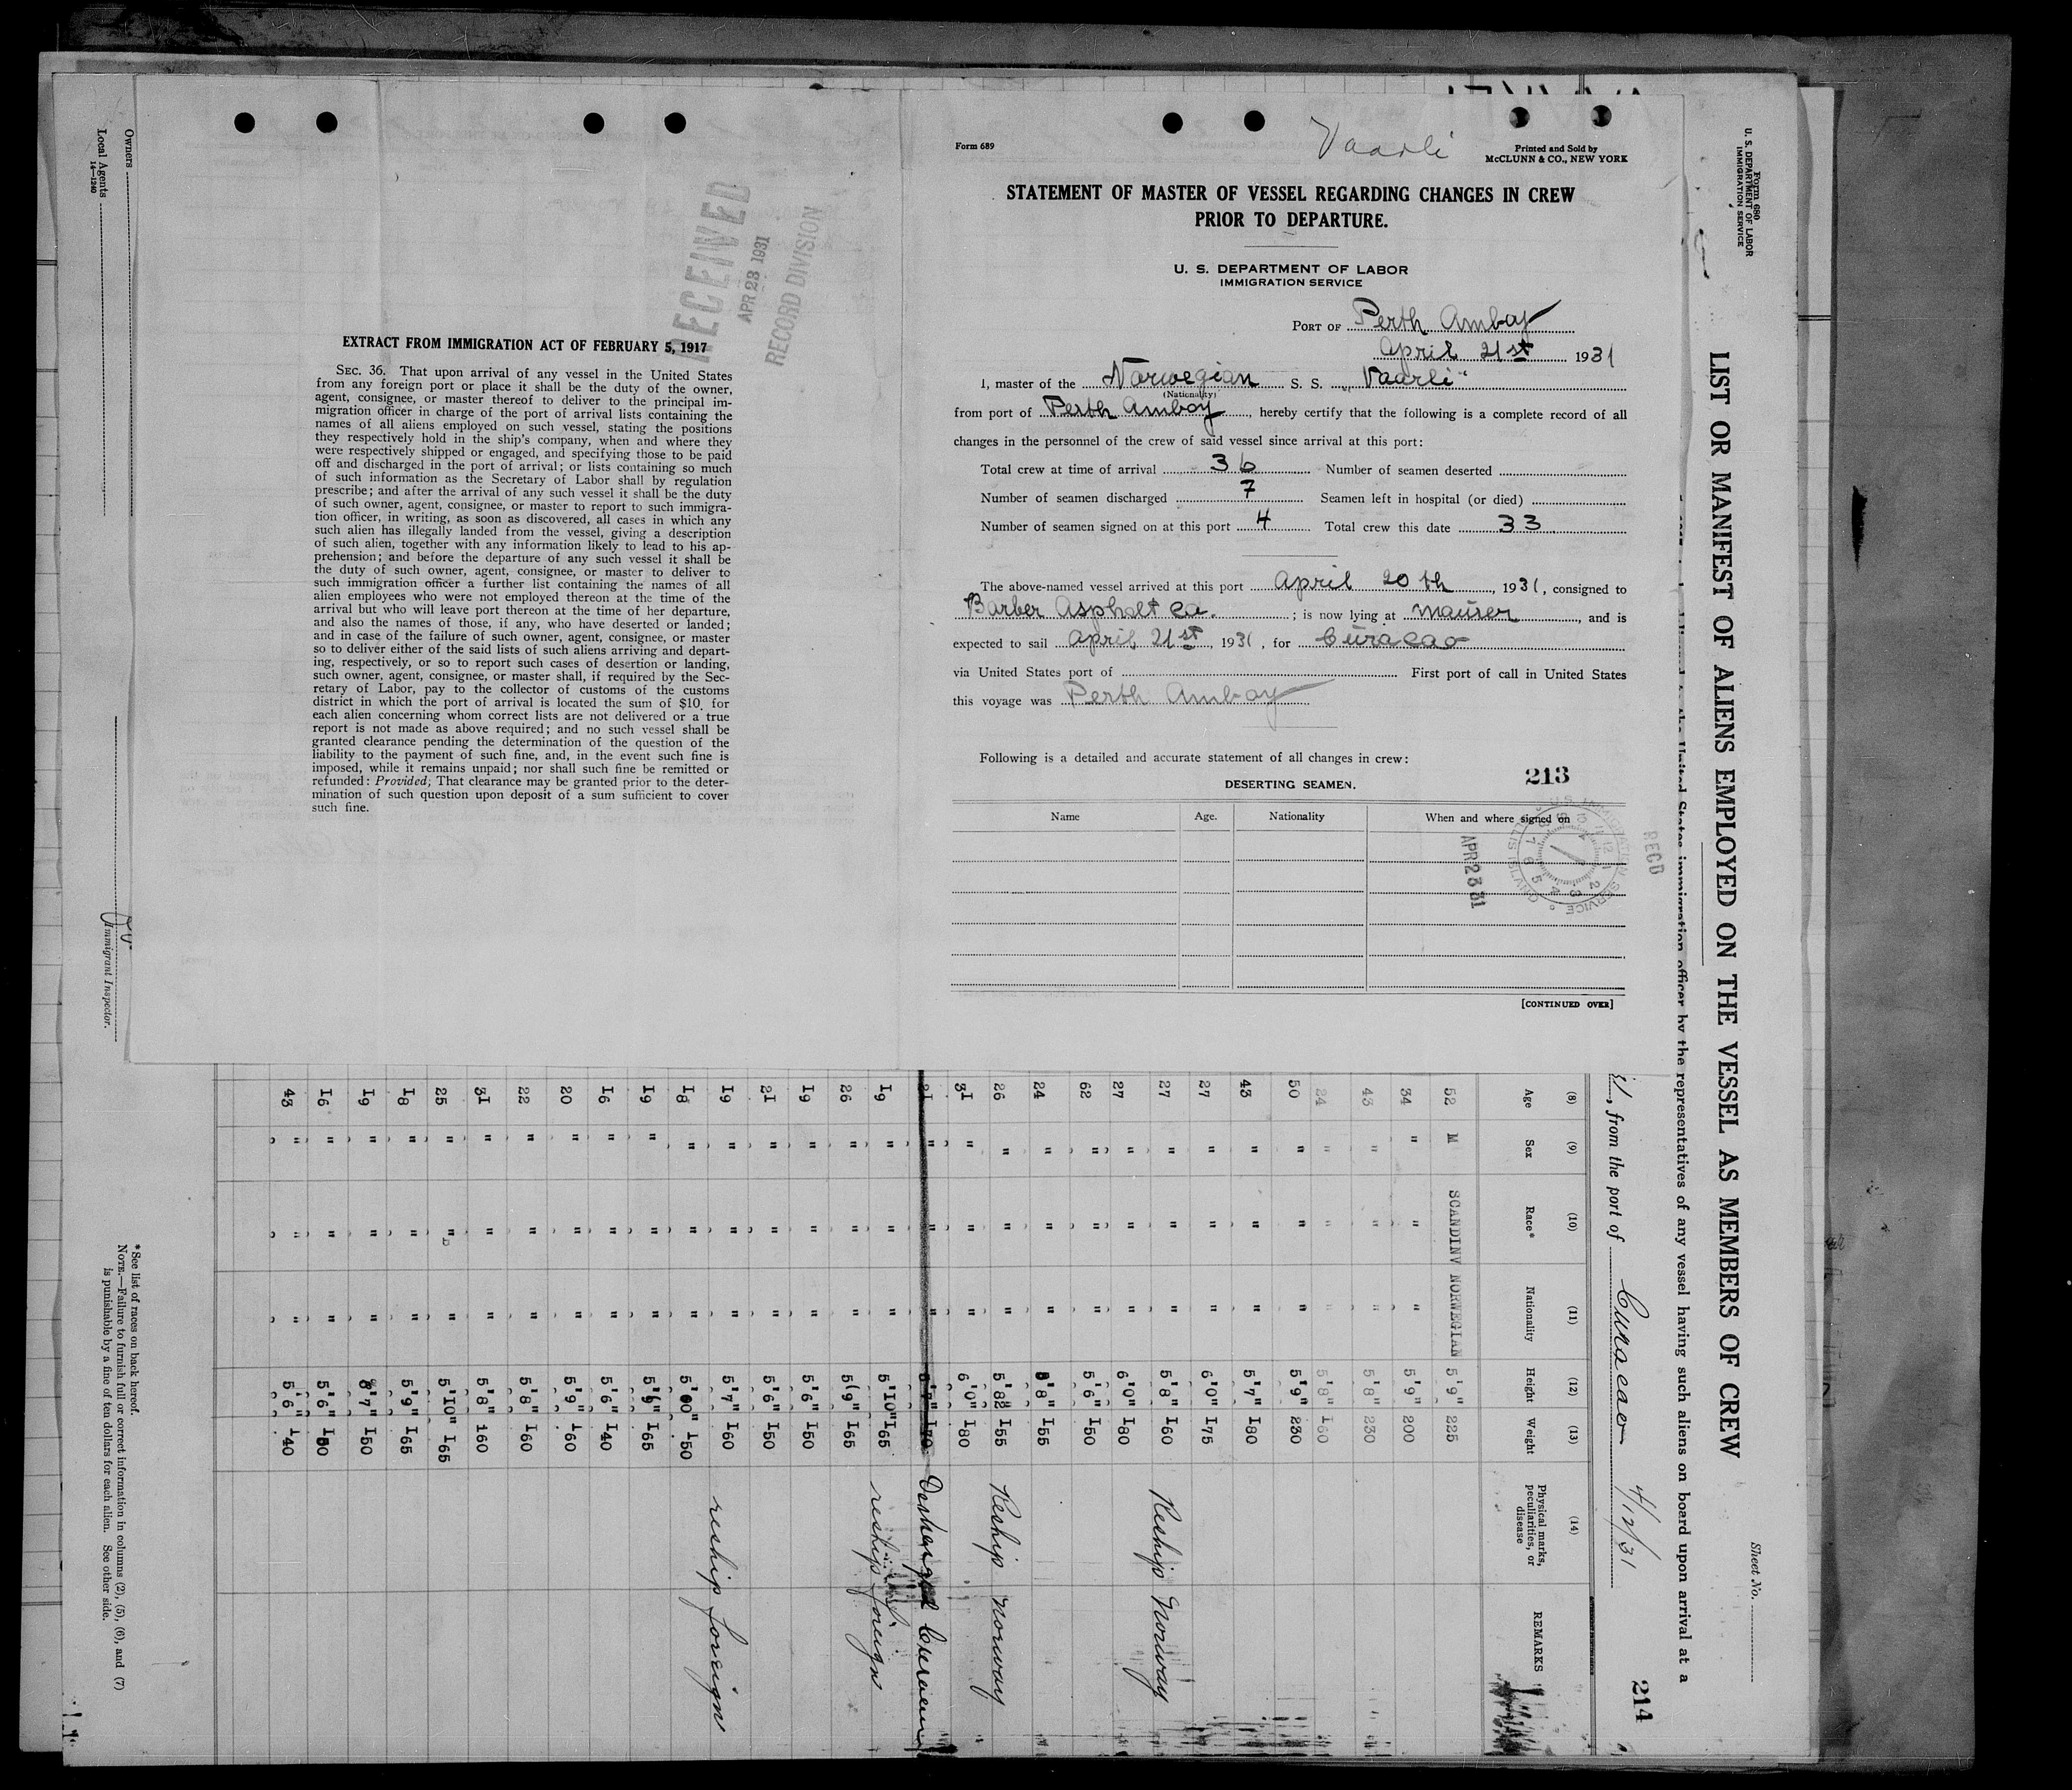 Form 689
Vaarli
Printed and Sold by
McCLUNN & CO., NEW YORK
STATEMENT OF MASTER OF VESSEL REGARDING CHANGES IN CREW
PRIOR TO DEPARTURE.
U. S. DEPARTMENT OF LABOR
IMMIGRATION SERVICE
PORT OF Perth Amboy
April 21st 1931
I, master of the Norwegian S. S. "Vaarli"
(Nationality)
from port of Perth Amboy, hereby certify that the following is a complete record of all
changes in the personnel of the crew of said vessel since arrival at this port:
Total crew at time of arrival 36 Number of seamen deserted
Number of seamen discharged 7 Seamen left in hospital (or died)
Number of seamen signed on at this port 4 Total crew this date 33
The above-named vessel arrived at this port April 20th, 1931, consigned to
Barber Asphalt Co. ; is now lying at Maurer, and is
expected to sail April 21st, 1931, for Curacao
via United States port of First port of call in United States
this voyage was Perth Amboy
Following is a detailed and accurate statement of all changes in crew:
213
DESERTING SEAMEN.
Name Age. Nationality When and where signed on
U. S. IMMIGRATION SERVICE
ELLIS ISLAND
REC'D
APR 23 31
[CONTINUED OVER]
RECEIVED
APR 23 1931
RECORD DIVISION
EXTRACT FROM IMMIGRATION ACT OF FEBRUARY 5, 1917
SEC. 36. That upon arrival of any vessel in the United States
from any foreign port or place it shall be the duty of the owner,
agent, consignee, or master thereof to deliver to the principal im-
migration officer in charge of the port of arrival lists containing the
names of all aliens employed on such vessel, stating the positions
they respectively hold in the ship's company, when and where they
were respectively shipped or engaged, and specifying those to be paid
off and discharged in the port of arrival; or lists containing so much
of such information as the Secretary of Labor shall by regulation
prescribe; and after the arrival of any such vessel it shall be the duty
of such owner, agent, consignee, or master to report to such immigra-
tion officer, in writing, as soon as discovered, all cases in which any
such alien has illegally landed from the vessel, giving a description
of such alien, together with any information likely to lead to his ap-
prehension; and before the departure of any such vessel it shall be
the duty of such owner, agent, consignee, or master to deliver to
such immigration officer a further list containing the names of all
alien employees who were not employed thereon at the time of the
arrival but who will leave port thereon at the time of her departure,
and also the names of those, if any, who have deserted or landed;
and in case of the failure of such owner, agent, consignee, or master
so to deliver either of the said lists of such aliens arriving and depart-
ing, respectively, or so to report such cases of desertion or landing,
such owner, agent, consignee, or master shall, if required by the Sec-
retary of Labor, pay to the collector of customs of the customs
district in which the port of arrival is located the sum of $10 for
each alien concerning whom correct lists are not delivered or a true
report is not made as above required; and no such vessel shall be
granted clearance pending the determination of the question of the
liability to the payment of such fine, and, in the event such fine is
imposed, while it remains unpaid; nor shall such fine be remitted or
refunded: Provided, That clearance may be granted prior to the deter-
mination of such question upon deposit of a sum sufficient to cover
such fine.
Form 680
U. S. DEPARTMENT OF LABOR
IMMIGRATION SERVICE
Sheet No.
LIST OR MANIFEST OF ALIENS EMPLOYED ON THE VESSEL AS MEMBERS OF CREW
the United States immigration officer by the representatives of any vessel having such aliens on board upon arrival at a
214
, from the port of Curacao 4/12/31
(8) (9) (10) (11) (12) (13) (14)
Age Sex Race* Nationality Height Weight Physical marks, peculiarities, or disease REMARKS
52 M SCANDINV NORWEGIAN 5'9" 225
34 " " " 5'9" 200
43 " " " 5'8" 230
24 " " " 5'8" 160
50 " " " 5'9" 230
43 " " " 5'7" 180
27 " " " 6'0" 175
27 " " " 5'8" 160 Reship Norway
27 " " " 6'0" 180
62 " " " 5'6" 150
24 " " " 5'8" 155
26 " " " 155 Reship Norway
31 " " " 6'0" 180
21 " " " 170
19 " " " 5'10" 165 reship foreign
26 " " " 5'9" 165
19 " " " 5'6" 150
21 " " " 5'6" 150
19 " " " 5'7" 160 reship foreign
18 " " " 150
19 " " " 165
16 " " " 5'6" 140
20 " " " 5'9" 160
22 " " " 5'8" 160
31 " " " 5'8" 160
25 " " " 5'10" 165
18 " " " 5'9" 165
19 " " " 150
16 " " " 5'6"
43 " " " 5'6" 140
*See list of races on back hereof.
NOTE.—Failure to furnish full or correct information in columns (2), (5), (6), and (7)
is punishable by a fine of ten dollars for each alien. See other side.
Immigrant Inspector.
Owners
Local Agents
14—1240